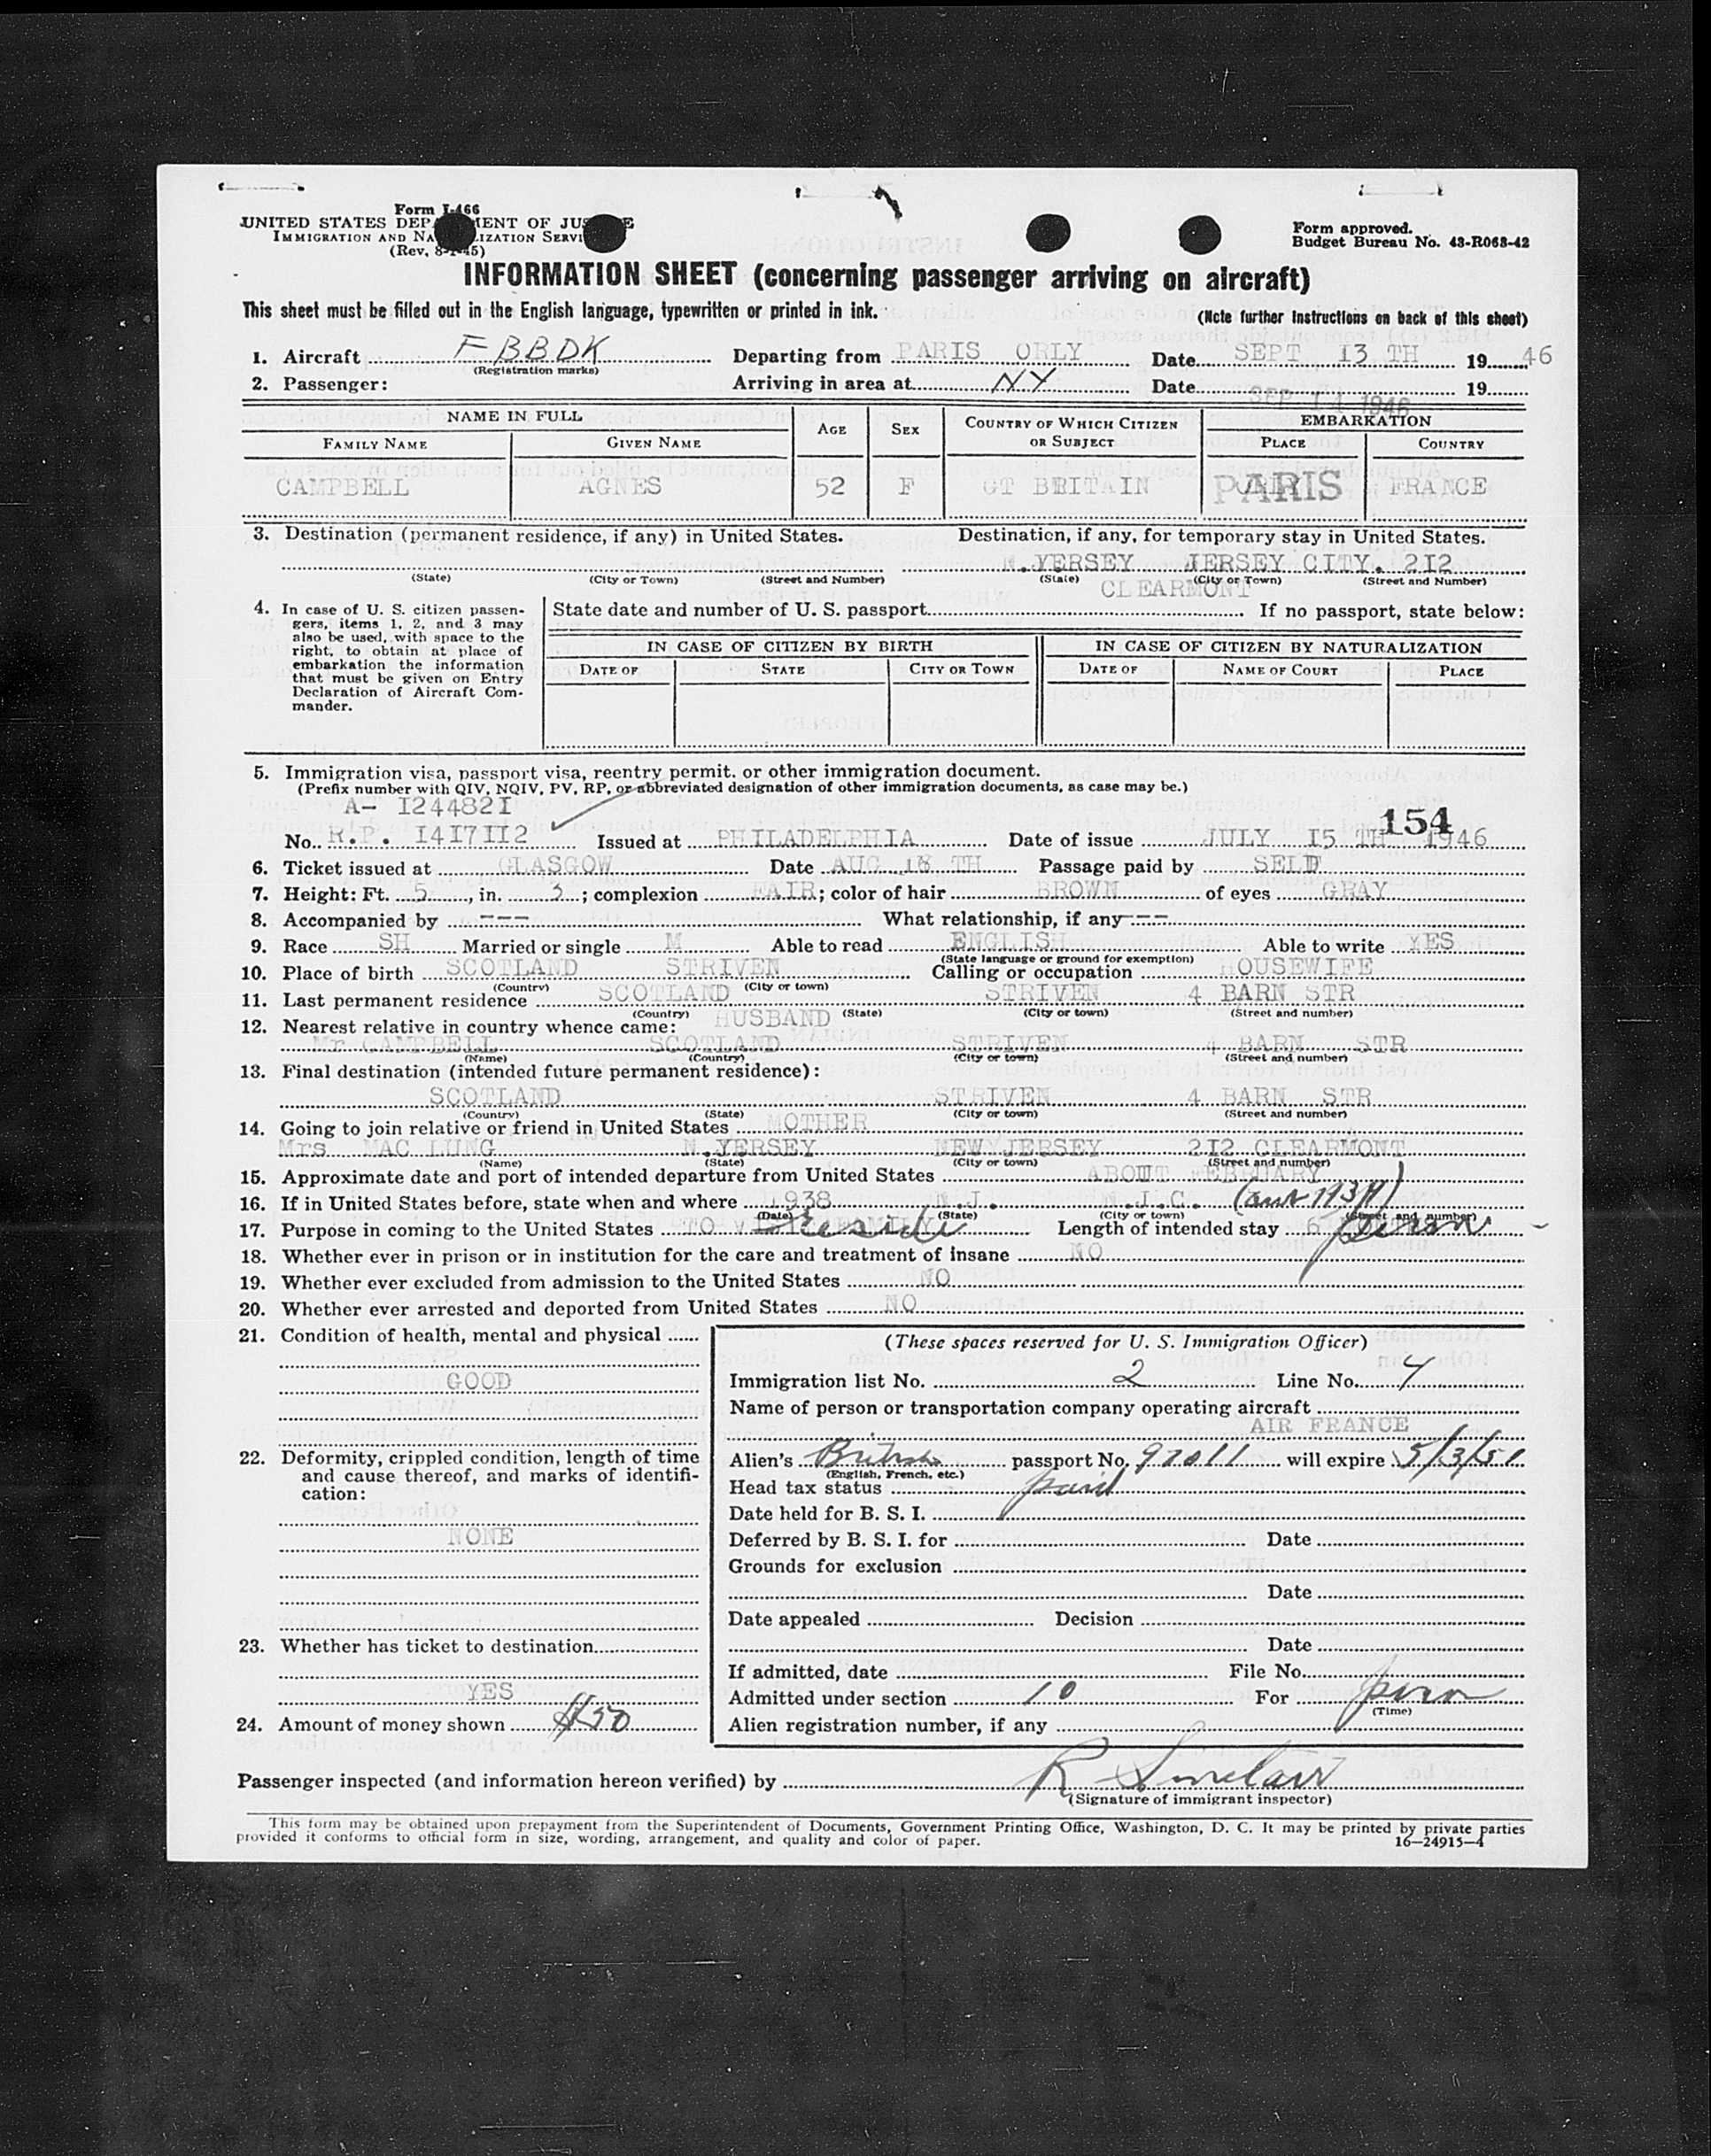 Form I-466
UNITED STATES DEPARTMENT OF JUSTICE
IMMIGRATION AND NATURALIZATION SERVICE
(Rev. 8-1-45)
Form approved.
Budget Bureau No. 43-R068-42
INFORMATION SHEET (concerning passenger arriving on aircraft)
This sheet must be filled out in the English language, typewritten or printed in ink.
(Note further instructions on back of this sheet)
1. Aircraft F BBDK Departing from PARIS ORLY Date SEPT 13 TH 19 46
(Registration marks)
2. Passenger: Arriving in area at NY Date SEP 14 1946 19
NAME IN FULL AGE SEX COUNTRY OF WHICH CITIZEN OR SUBJECT EMBARKATION
FAMILY NAME GIVEN NAME PLACE COUNTRY
CAMPBELL AGNES 52 F GT BRITAIN PARIS FRANCE
3. Destination (permanent residence, if any) in United States. Destination, if any, for temporary stay in United States.
N.YERSEY JERSEY CITY. 212
(State) (City or Town) (Street and Number) (State) (City or Town) (Street and Number)
CLEARMONT
4. In case of U. S. citizen passengers, items 1, 2, and 3 may also be used, with space to the right, to obtain at place of embarkation the information that must be given on Entry Declaration of Aircraft Commander.
State date and number of U. S. passport If no passport, state below:
IN CASE OF CITIZEN BY BIRTH IN CASE OF CITIZEN BY NATURALIZATION
DATE OF STATE CITY OR TOWN DATE OF NAME OF COURT PLACE
5. Immigration visa, passport visa, reentry permit, or other immigration document.
(Prefix number with QIV, NQIV, PV, RP, or abbreviated designation of other immigration documents, as case may be.)
A- I24482I
154
No. R.P. I4I7II2 Issued at PHILADELPHIA Date of issue JULY I5 TH 1946
6. Ticket issued at GLASGOW Date AUG 18 TH Passage paid by SELF
7. Height: Ft. 5, in. 3; complexion FAIR; color of hair BROWN of eyes GRAY
8. Accompanied by --- What relationship, if any ---
9. Race SH Married or single M Able to read ENGLISH Able to write YES
(State language or ground for exemption)
10. Place of birth SCOTLAND STRIVEN Calling or occupation HOUSEWIFE
(Country) (City or town)
11. Last permanent residence SCOTLAND STRIVEN 4 BARN STR
(Country) (State) (City or town) (Street and number)
12. Nearest relative in country whence came: HUSBAND
Mr CAMPBELL SCOTLAND STRIVEN 4 BARN STR
(Name) (Country) (City or town) (Street and number)
13. Final destination (intended future permanent residence):
SCOTLAND STRIVEN 4 BARN STR
(Country) (State) (City or town) (Street and number)
14. Going to join relative or friend in United States MOTHER
Mrs MAC LUNG N.YERSEY NEW JERSEY 2I2 CLEARMONT
(Name) (State) (City or town) (Street and number)
15. Approximate date and port of intended departure from United States ABOUT FEBRUARY
16. If in United States before, state when and where 1938 N.J. N.J.C.
(Date) (State) (City or town) (Street and number)
17. Purpose in coming to the United States TO reside Length of intended stay 6
18. Whether ever in prison or in institution for the care and treatment of insane NO
19. Whether ever excluded from admission to the United States NO
20. Whether ever arrested and deported from United States NO
21. Condition of health, mental and physical
GOOD
22. Deformity, crippled condition, length of time and cause thereof, and marks of identification:
NONE
23. Whether has ticket to destination
YES
24. Amount of money shown $50
(These spaces reserved for U. S. Immigration Officer)
Immigration list No. 2 Line No. 4
Name of person or transportation company operating aircraft
AIR FRANCE
Alien's British passport No. 92011 will expire 5/3/51
(English, French, etc.)
Head tax status paid
Date held for B. S. I.
Deferred by B. S. I. for Date
Grounds for exclusion
Date
Date appealed Decision
Date
If admitted, date File No.
Admitted under section 10 For
(Time)
Alien registration number, if any
Passenger inspected (and information hereon verified) by R Sinclair
(Signature of immigrant inspector)
This form may be obtained upon prepayment from the Superintendent of Documents, Government Printing Office, Washington, D. C. It may be printed by private parties
provided it conforms to official form in size, wording, arrangement, and quality and color of paper.
16—24915-4